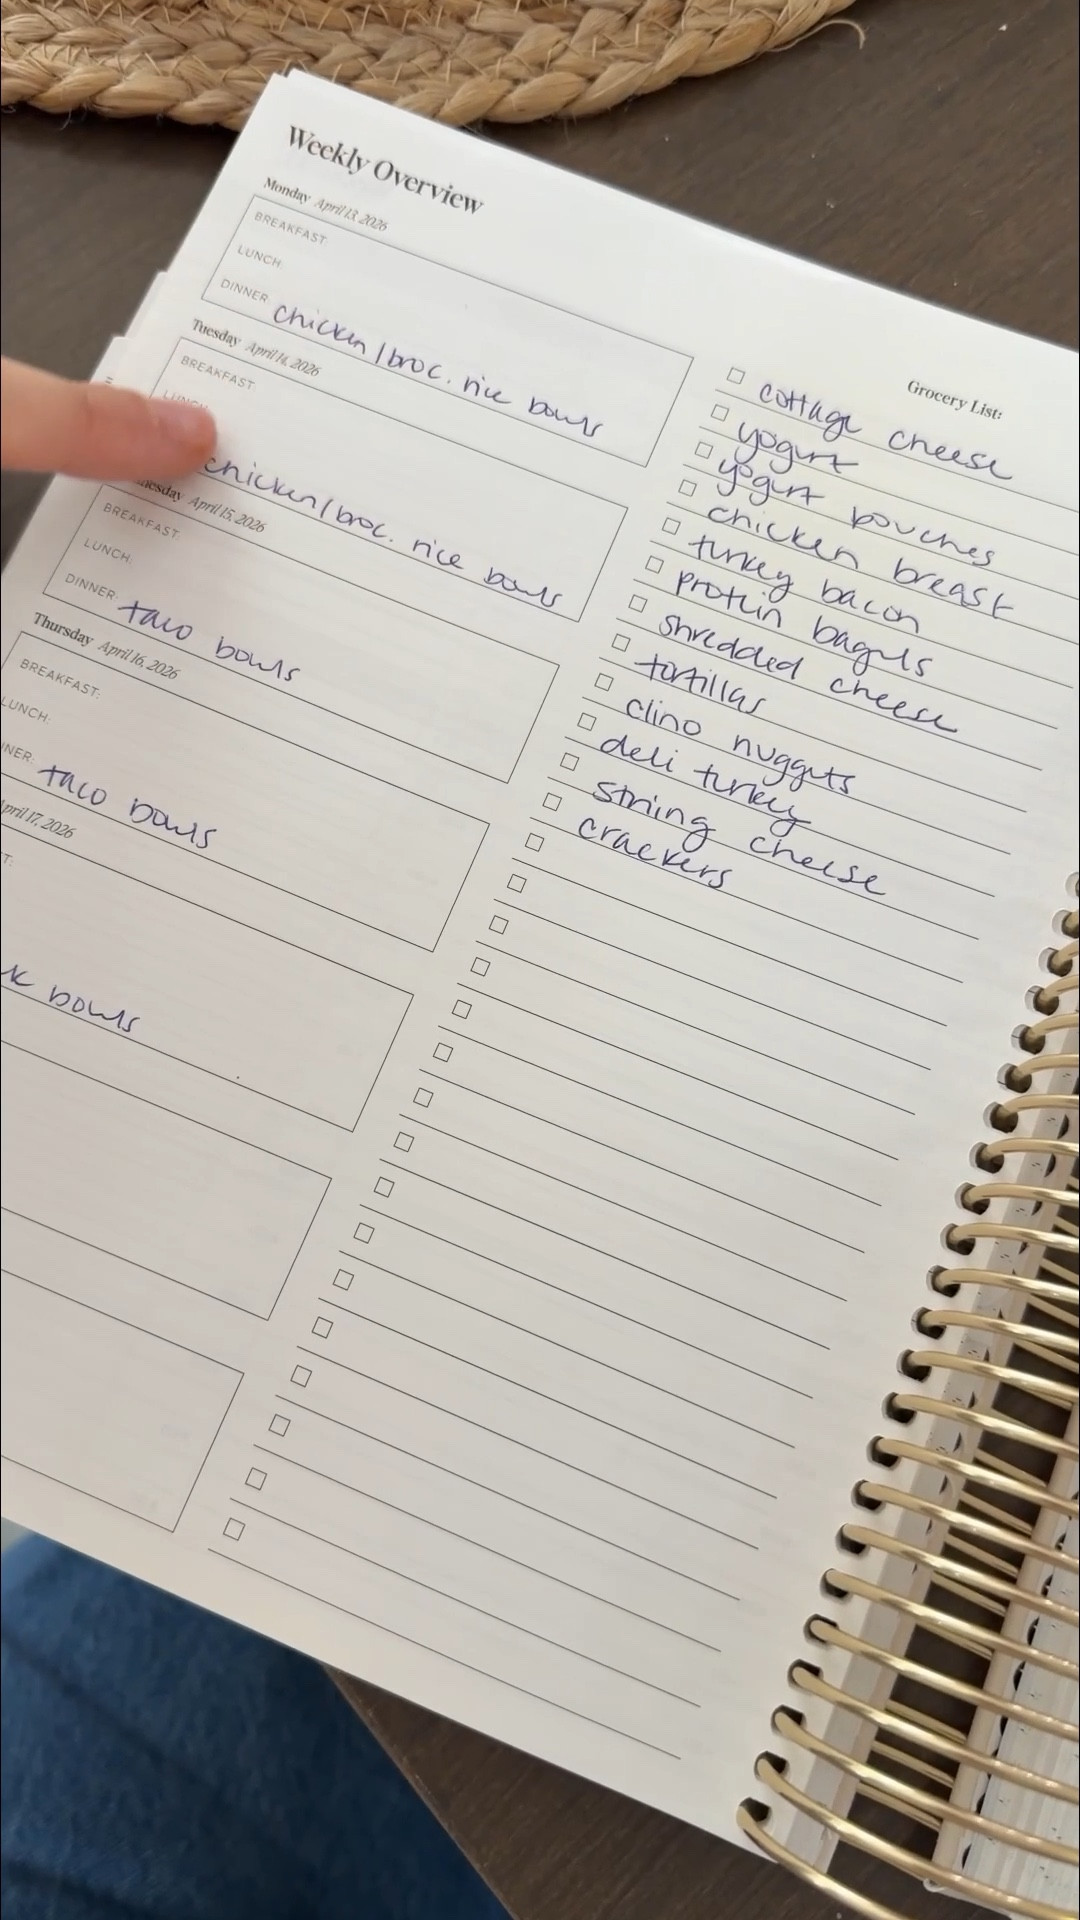 Weekly Overview
Monday April 13, 2026
BREAKFAST:
LUNCH:
DINNER: chicken/broc. rice bowls
Tuesday April 14, 2026
BREAKFAST:
LUNCH:
chicken/broc. rice bowls
April 15, 2026
BREAKFAST:
LUNCH:
DINNER: taco bowls
Thursday April 16, 2026
BREAKFAST:
LUNCH:
NER: taco bowls
April 17, 2026
T:
bowls
Grocery List:
cottage cheese
yogurt
yogurt pouches
chicken breast
turkey bacon
protein bagels
shredded cheese
tortillas
clino nuggets
deli turkey
string cheese
crackers